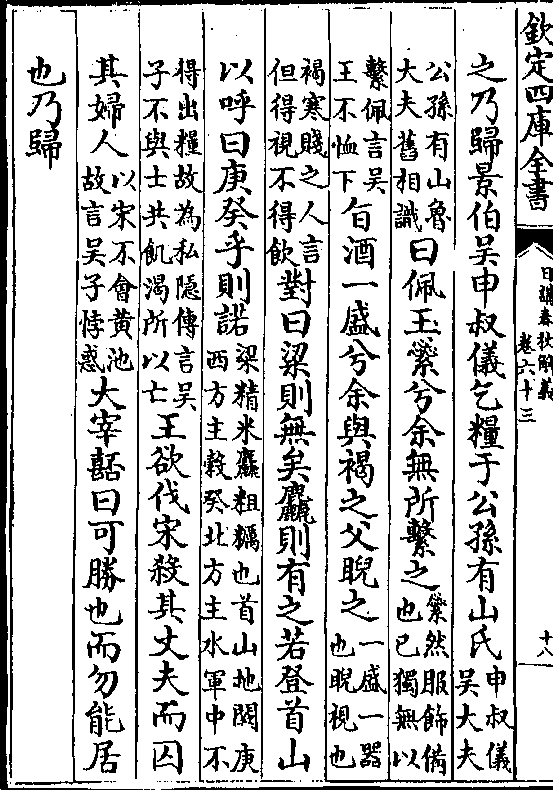 欽定四庫全書
日講春秋解義
卷六十三
十八
之乃歸景伯吳申叔儀乞糧于公孫有山氏申叔儀吳大夫
公孫有山魯大夫舊相識曰佩玉繠兮余無所繫之繠然服飾備也已獨無以
繫佩言吳王不恤下旨酒一盛兮余與褐之父睨之一盛一器也睨視也
褐寒賤之人言但得視不得飲對曰梁則無矣麤則有之若登首山
以呼曰庚癸乎則諾梁精米麤粗糲也首山地闕庚西方主穀癸北方主水軍中不
得出糧故為私隱傳言吳子不與士共飢渴所以亡王欲伐宋殺其丈夫而囚
其婦人以宋不會黃池故言吳子悖惑大宰嚭曰可勝也而勿能居
也乃歸